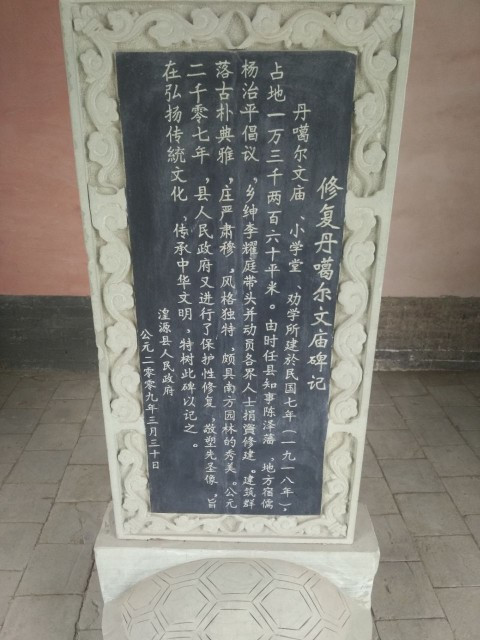 修复丹噶尔文庙碑记
丹噶尔文庙、小学堂、劝学所建於民国七年（一九一八年），
占地一万三千两百六十平米。由时任县知事陈泽藩、地方宿儒
杨治平倡议，乡绅李耀庭带头并动员各界人士捐资修建。建筑群
落古朴典雅，庄严肃穆，风格独特，颇具南方园林的秀美。公元
二千零七年，县人民政府又进行了保护性修复，敬塑先圣像，旨
在弘扬传统文化，传承中华文明，特树此碑以记之。
湟源县人民政府
公元二零零九年三月三十日